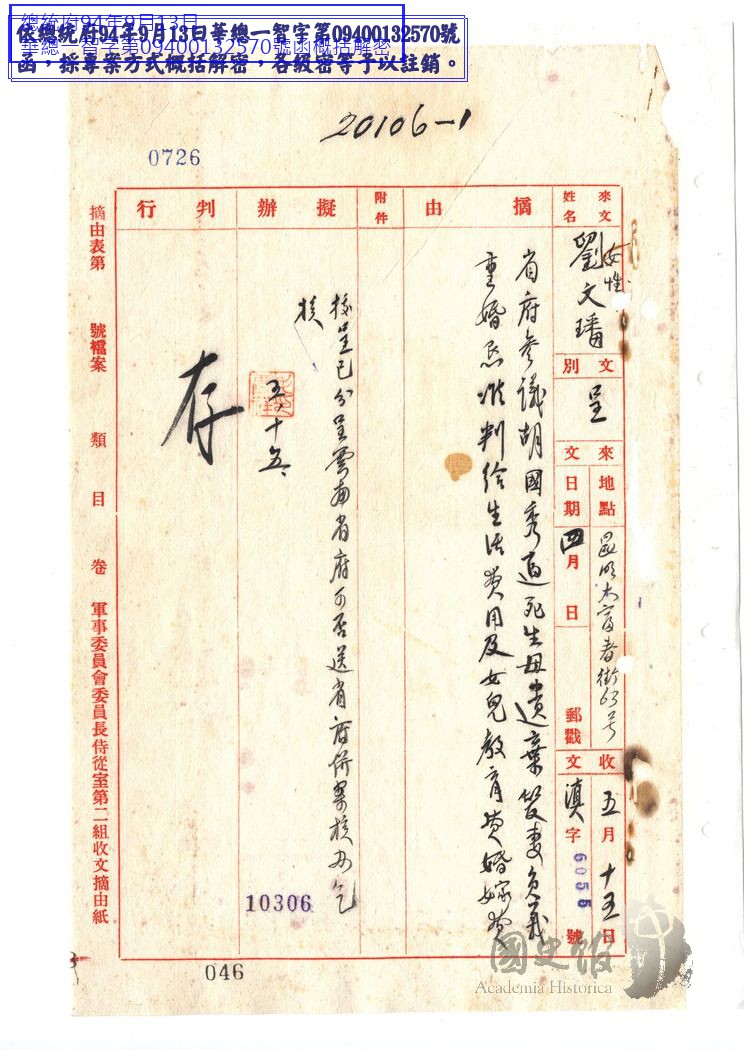 總統府94年9月13日
華總一智字第09400132570號函概括解密
依總統府94年9月13日華總一智字第09400132570號
函，採專案方式概括解密，各級密等予以註銷。
20106-1
0726
來文姓名
劉文璠
女性
文別
呈
來文
地點
昆明大富春街63号
日期
四月 日
郵戳
收文
五月十五日
滇字6055號
摘由
省府參議胡國秀逼死生母遺棄髮妻負義
重婚懇准判給生活費用及女兒教育費婚嫁費
附件
擬辦
核呈已分呈雲南省府可否送省府併案核办乞
核
五、十五、
10306
判行
存
摘由表第 號檔案 類 目 卷 軍事委員會委員長侍從室第二組收文摘由紙
046
國史館
Academia Historica